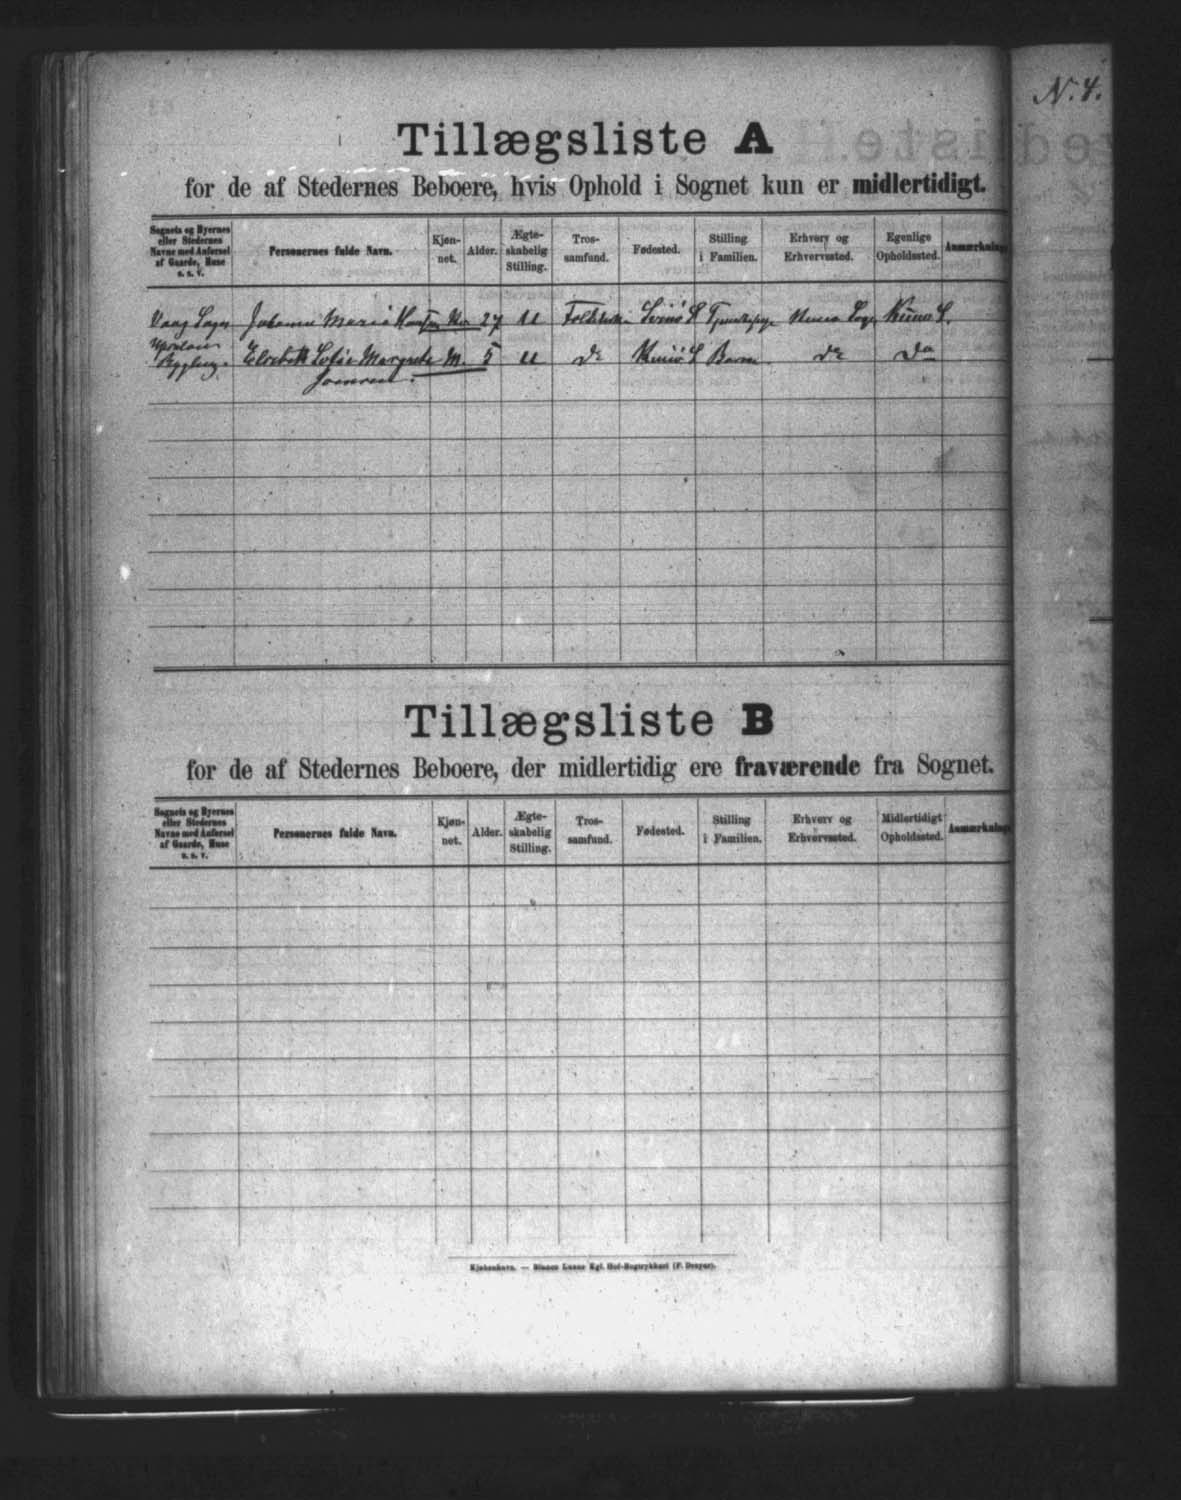 N. 4.
Tillægsliste A
for de af Stedernes Beboere, hvis Ophold i Sognet kun er midlertidigt.
Sognets og Byernes eller Stedernes Navne med Anførsel af Gaarde, Huse o. s. v.
Personernes fulde Navn.
Kjøn-
net.
Alder.
Ægte-
skabelig
Stilling.
Tros-
samfund.
Fødested.
Stilling
i Familien.
Erhverv og
Erhvervssted.
Egenlige
Opholdssted.
Anmærkninge
Vaag Sogn Johanne Maria Kv. 27 U Folkekirken Svinö S Tjenestepige Sogn Kunö S.
Elsebeth Sofie Margrete M. 5 U do Kunö S Barn do do
Joensen.
Tillægsliste B
for de af Stedernes Beboere, der midlertidig ere fraværende fra Sognet.
Sognets og Byernes
eller Stedernes
Navne med Anførsel
af Gaarde, Huse
o. s. v.
Personernes fulde Navn.
Kjøn-
net.
Alder.
Ægte-
skabelig
Stilling.
Tros-
samfund.
Fødested.
Stilling
i Familien.
Erhverv og
Erhvervssted.
Midlertidigt
Opholdssted.
Anmærkninge
Kjøbenhavn. — Bianco Lunos Kgl. Hof-Bogtrykkeri (F. Dreyer).